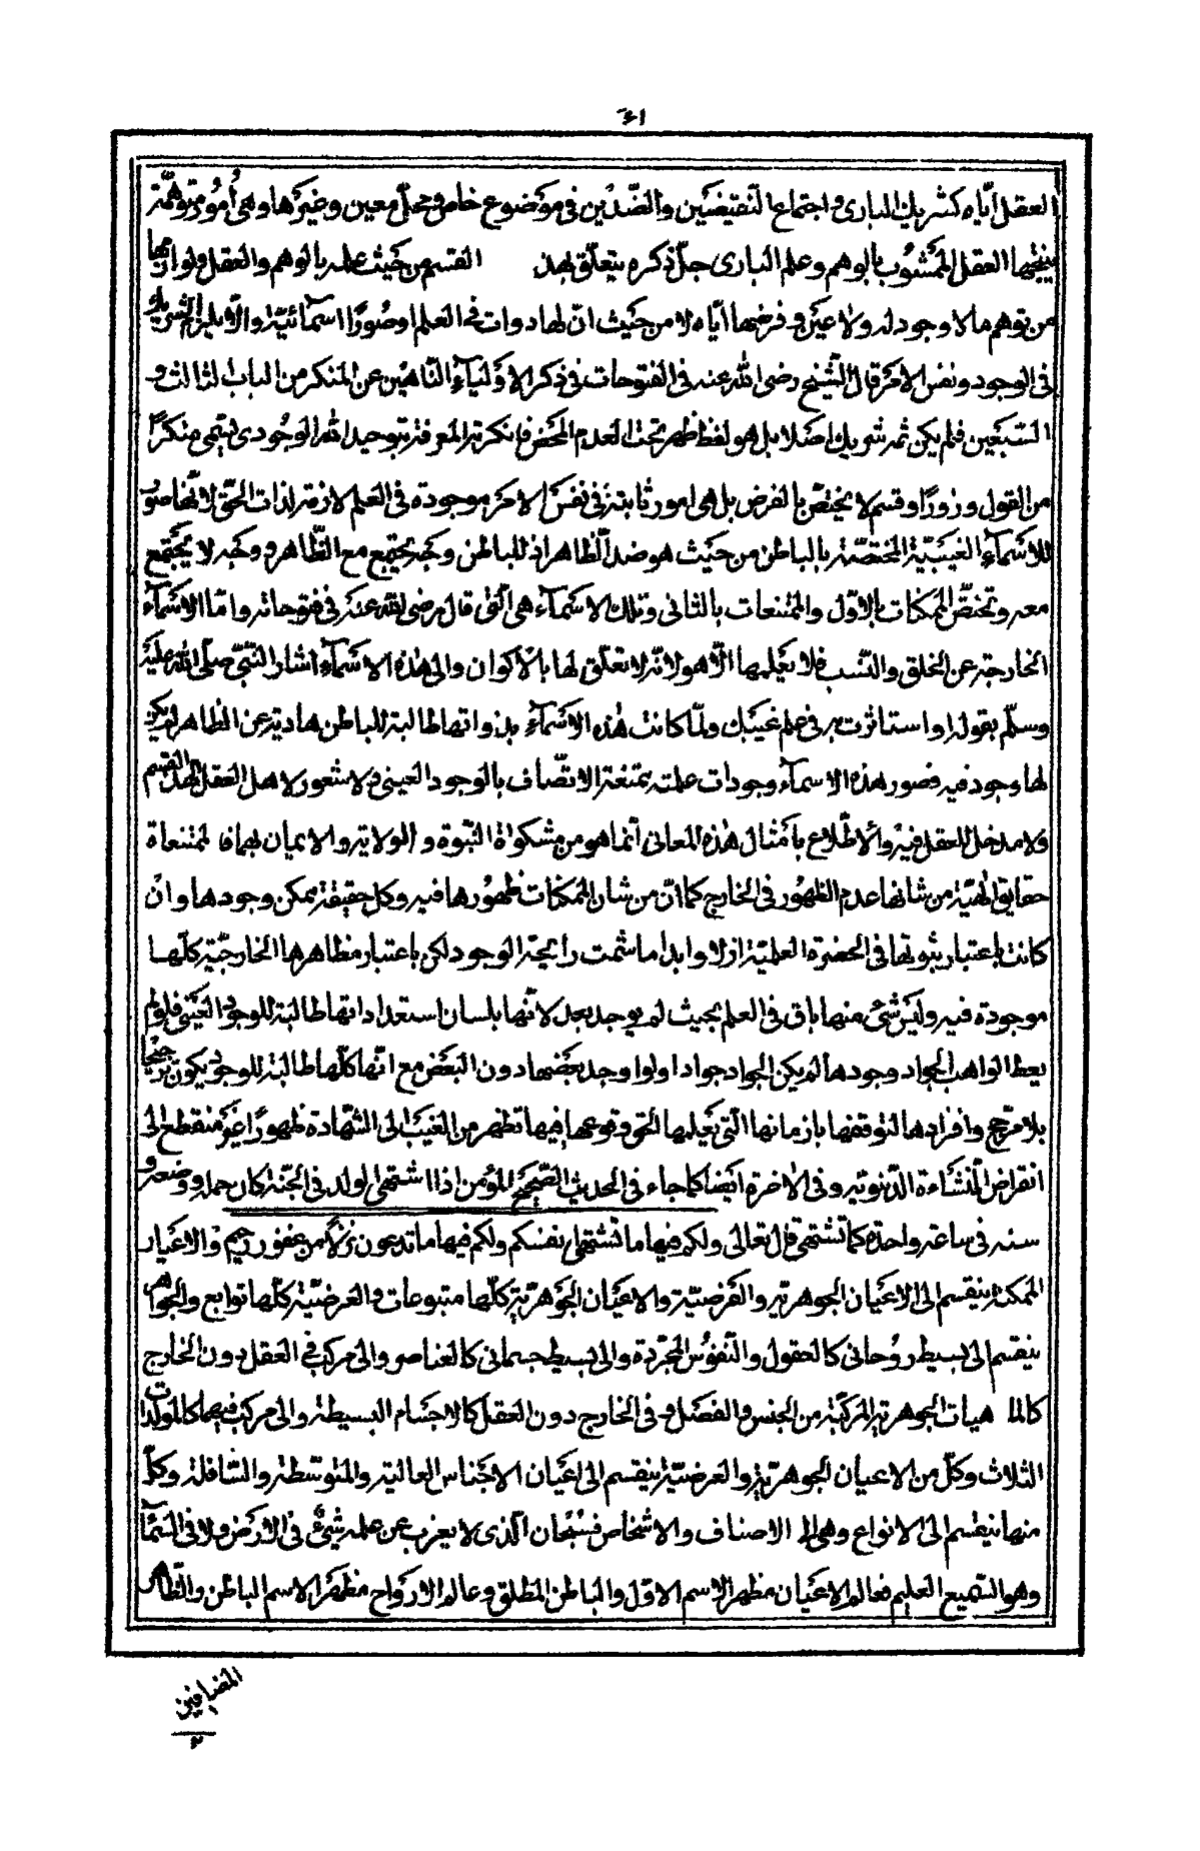 العقل اياه كشريك البارى واجتماع النقيضين والضدين فى موضوع خاص ومحل معين وغيرها وهى امور متوهمة
ينتجها العقل المشوب بالوهم وعلم البارى جل ذكره يتعلق بهذا القسم من حيث علمه بالوهم والعقل ولوازمهما
من توهم مالا وجود له ولا عين وفرضهما اياه لا من حيث ان لها ذوات فى العلم او صورا اسمائية والا يلزم الشريك
فى الوجود ونفس الامر قال الشيخ رضى الله عنه فى الفتوحات فى ذكر الاولياء الناهين عن المنكر من الباب الثالث و
السبعين فلم يكن ثمه شريك اصلا بل هو لفظ ظهر تحته العدم المحض فانكرته المعرفة بتوحيد الله الوجودى فيسمى منكرا
من القول وزورا وقسم لا يختص بالفرض بل هى امور ثابتة فى نفس الامر موجودة فى العلم لازمة لذات الحق لانها صور
للاسماء الغيبية المختصة بالباطن من حيث هو ضد الظاهر اذ للباطن وجه يجتمع مع الظاهر ووجه لا يجتمع
معه وتختص الممكنات بالاول والممتنعات بالثانى وتلك الاسماء هى التى قال رضى الله عنه فى فتوحاته واما الاسماء
الخارجة عن الخلق والنسب فلا يعلمها الا هو لانه لا تعلق لها بالاكوان والى هذه الاسماء اشار النبى صلى الله عليه
وسلم بقوله او استاثرت به فى علم غيبك ولما كانت هذه الاسماء بذواتها طالبة للباطن هاربة عن الظاهر لم يكن
لها وجود فيه فصور هذه الاسماء وجودات علمية ممتنعة الاتصاف بالوجود العينى ولا شعور لاهل العقل بهذا القسم
ولا مدخل للعقل فيه والاطلاع بامثال هذه المعانى انما هو من مشكواة النبوة والولاية والايمان بهما فالممتنعاة
حقايق الهية من شانها عدم الظهور فى الخارج كما ان من شان الممكنات ظهورها فيه وكل حقيقة يمكن وجودها وان
كانت باعتبار ثبوتها فى الحضرة العلمية ازلا وابدا ما شمت رايحة الوجود لكن باعتبار مظاهرها الخارجية كلها
موجودة فيه وليس شئ منها باق فى العلم بحيث لم يوجد بعد لانها بلسان استعداداتها طالبة للوجود العينى فلو لم
يعط الواهب الجواد وجودها لم يكن الجواد جوادا ولو اوجد بعضها دون البعض مع انها كلها طالبة للوجود يكون ترجيحا
بلا مرجح وافرادها لتوقفها بازمانها التى يعلمها الحق وقوعها فيها تظهر من الغيب الى الشهادة ظهورا غير منقطع الى
انقراض النشاءة الدنيوية وفى الاخرة ايضا كما جاء فى الحديث الصحيح المؤمن اذا اشتهى الولد فى الجنة كان حمله ووضعه و
سنه فى ساعة واحدة كما تشتهى قال تعالى ولكم فيها ما تشتهى انفسكم ولكم فيها ما تدعون نزلا من غفور رحيم والاعيان
الممكنة ينقسم الى الاعيان الجوهرية والعرضية والاعيان الجوهرية كلها متبوعات والعرضية كلها توابع والجواهر
ينقسم الى بسيط روحانى كالعقول والنفوس المجردة والى بسيط جسمانى كالعناصر والى مركب فى العقل دون الخارج
كالما هيات الجوهرية المركبة من الجنس والفصل و فى الخارج دون العقل كالاجسام البسيطة والى مركب فيهما كالمولدات
الثلاث وكل من الاعيان الجوهرية والعرضية ينقسم الى اعيان الاجناس العالية والمتوسطة والسافلة وكل
منها ينقسم الى الانواع وهى الى الاصناف والاشخاص فسبحان الذى لا يعزب عن علمه شئ فى الارض ولا فى السماء
وهو السميع العليم فعالم الاعيان مظهر الاسم الاول والباطن المطلق وعالم الارواح مظهر الاسم الباطن والظاهر
المضافين